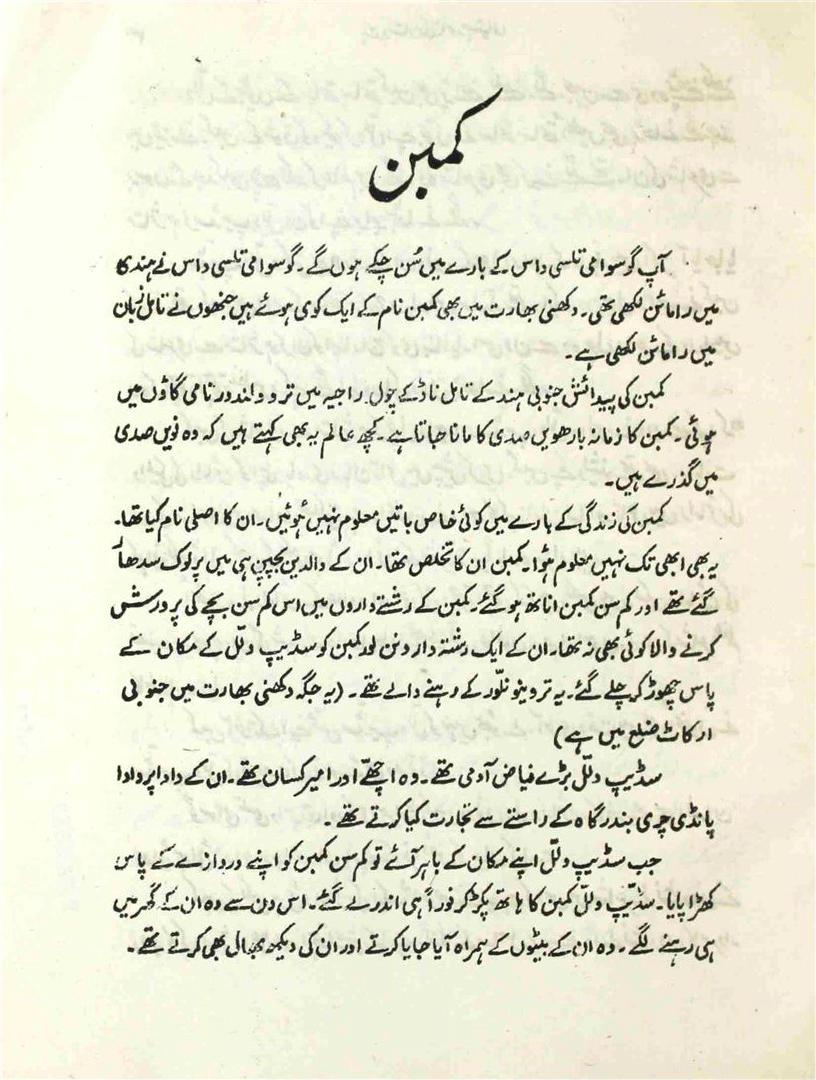 کمبن
آپ گوسوامی تلسی داس کے بارے میں سُن چکے ہوں گے۔ گوسوامی تلسی داس نے ہندکا
میں رامائن لکھی تھی۔ دکھنی بھارت میں بھی کمبن نام کے ایک کوی ہوئے ہیں جنھوں نے تامل زبان
میں رامائن لکھی ہے۔
کمبن کی پیدائش جنوبی ہند کے تامل ناڈ کے چول راجیہ میں تروولندور نامی گاؤں میں
ہوئی۔ کمبن کا زمانہ بارھویں صدی کا مانا جاتا ہے۔ کچھ عالم یہ بھی کہتے ہیں کہ وہ نویں صدی
میں گذرے ہیں۔
کمبن کی زندگی کے بارے میں کوئی خاص باتیں معلوم نہیں ہوئیں۔ ان کا اصلی نام کیا تھا۔
یہ بھی ابھی تک نہیں معلوم ہوا۔ کمبن ان کا تخلص تھا۔ ان کے والدین بچپن ہی میں پرلوک سدھار
گئے تھے اور کم سن کمبن اناتھ ہو گئے۔ کمبن کے رشتے داروں میں اس کم سن بچے کی پرورش
کرنے والا کوئی بھی نہ تھا۔ ان کے ایک رشتہ دار ونن لور کمبن کو سڈیپ ولّل کے مکان کے
پاس چھوڑ کر چلے گئے۔ یہ تروینو نلّور کے رہنے والے تھے۔ (یہ جگہ دکھنی بھارت میں جنوبی
ارکاٹ ضلع میں ہے)
سڈیپ ولّل بڑے فیاض آدمی تھے۔ وہ اچھے اور امیر کسان تھے۔ ان کے دادا پردادا
پانڈی چری بندرگاہ کے راستے سے تجارت کیا کرتے تھے۔
جب سڈیپ ولّل اپنے مکان کے باہر آئے تو کم سن کمبن کو اپنے دروازے کے پاس
کھڑا پایا۔ سڈیپ ولّل کمبن کا ہاتھ پکڑ کر فوراً ہی اندر لے گئے۔ اس دن سے وہ ان کے گھر میں
ہی رہنے لگے۔ وہ ان کے بیٹوں کے ہمراہ آیا جایا کرتے اور ان کی دیکھ بھال بھی کرتے تھے۔